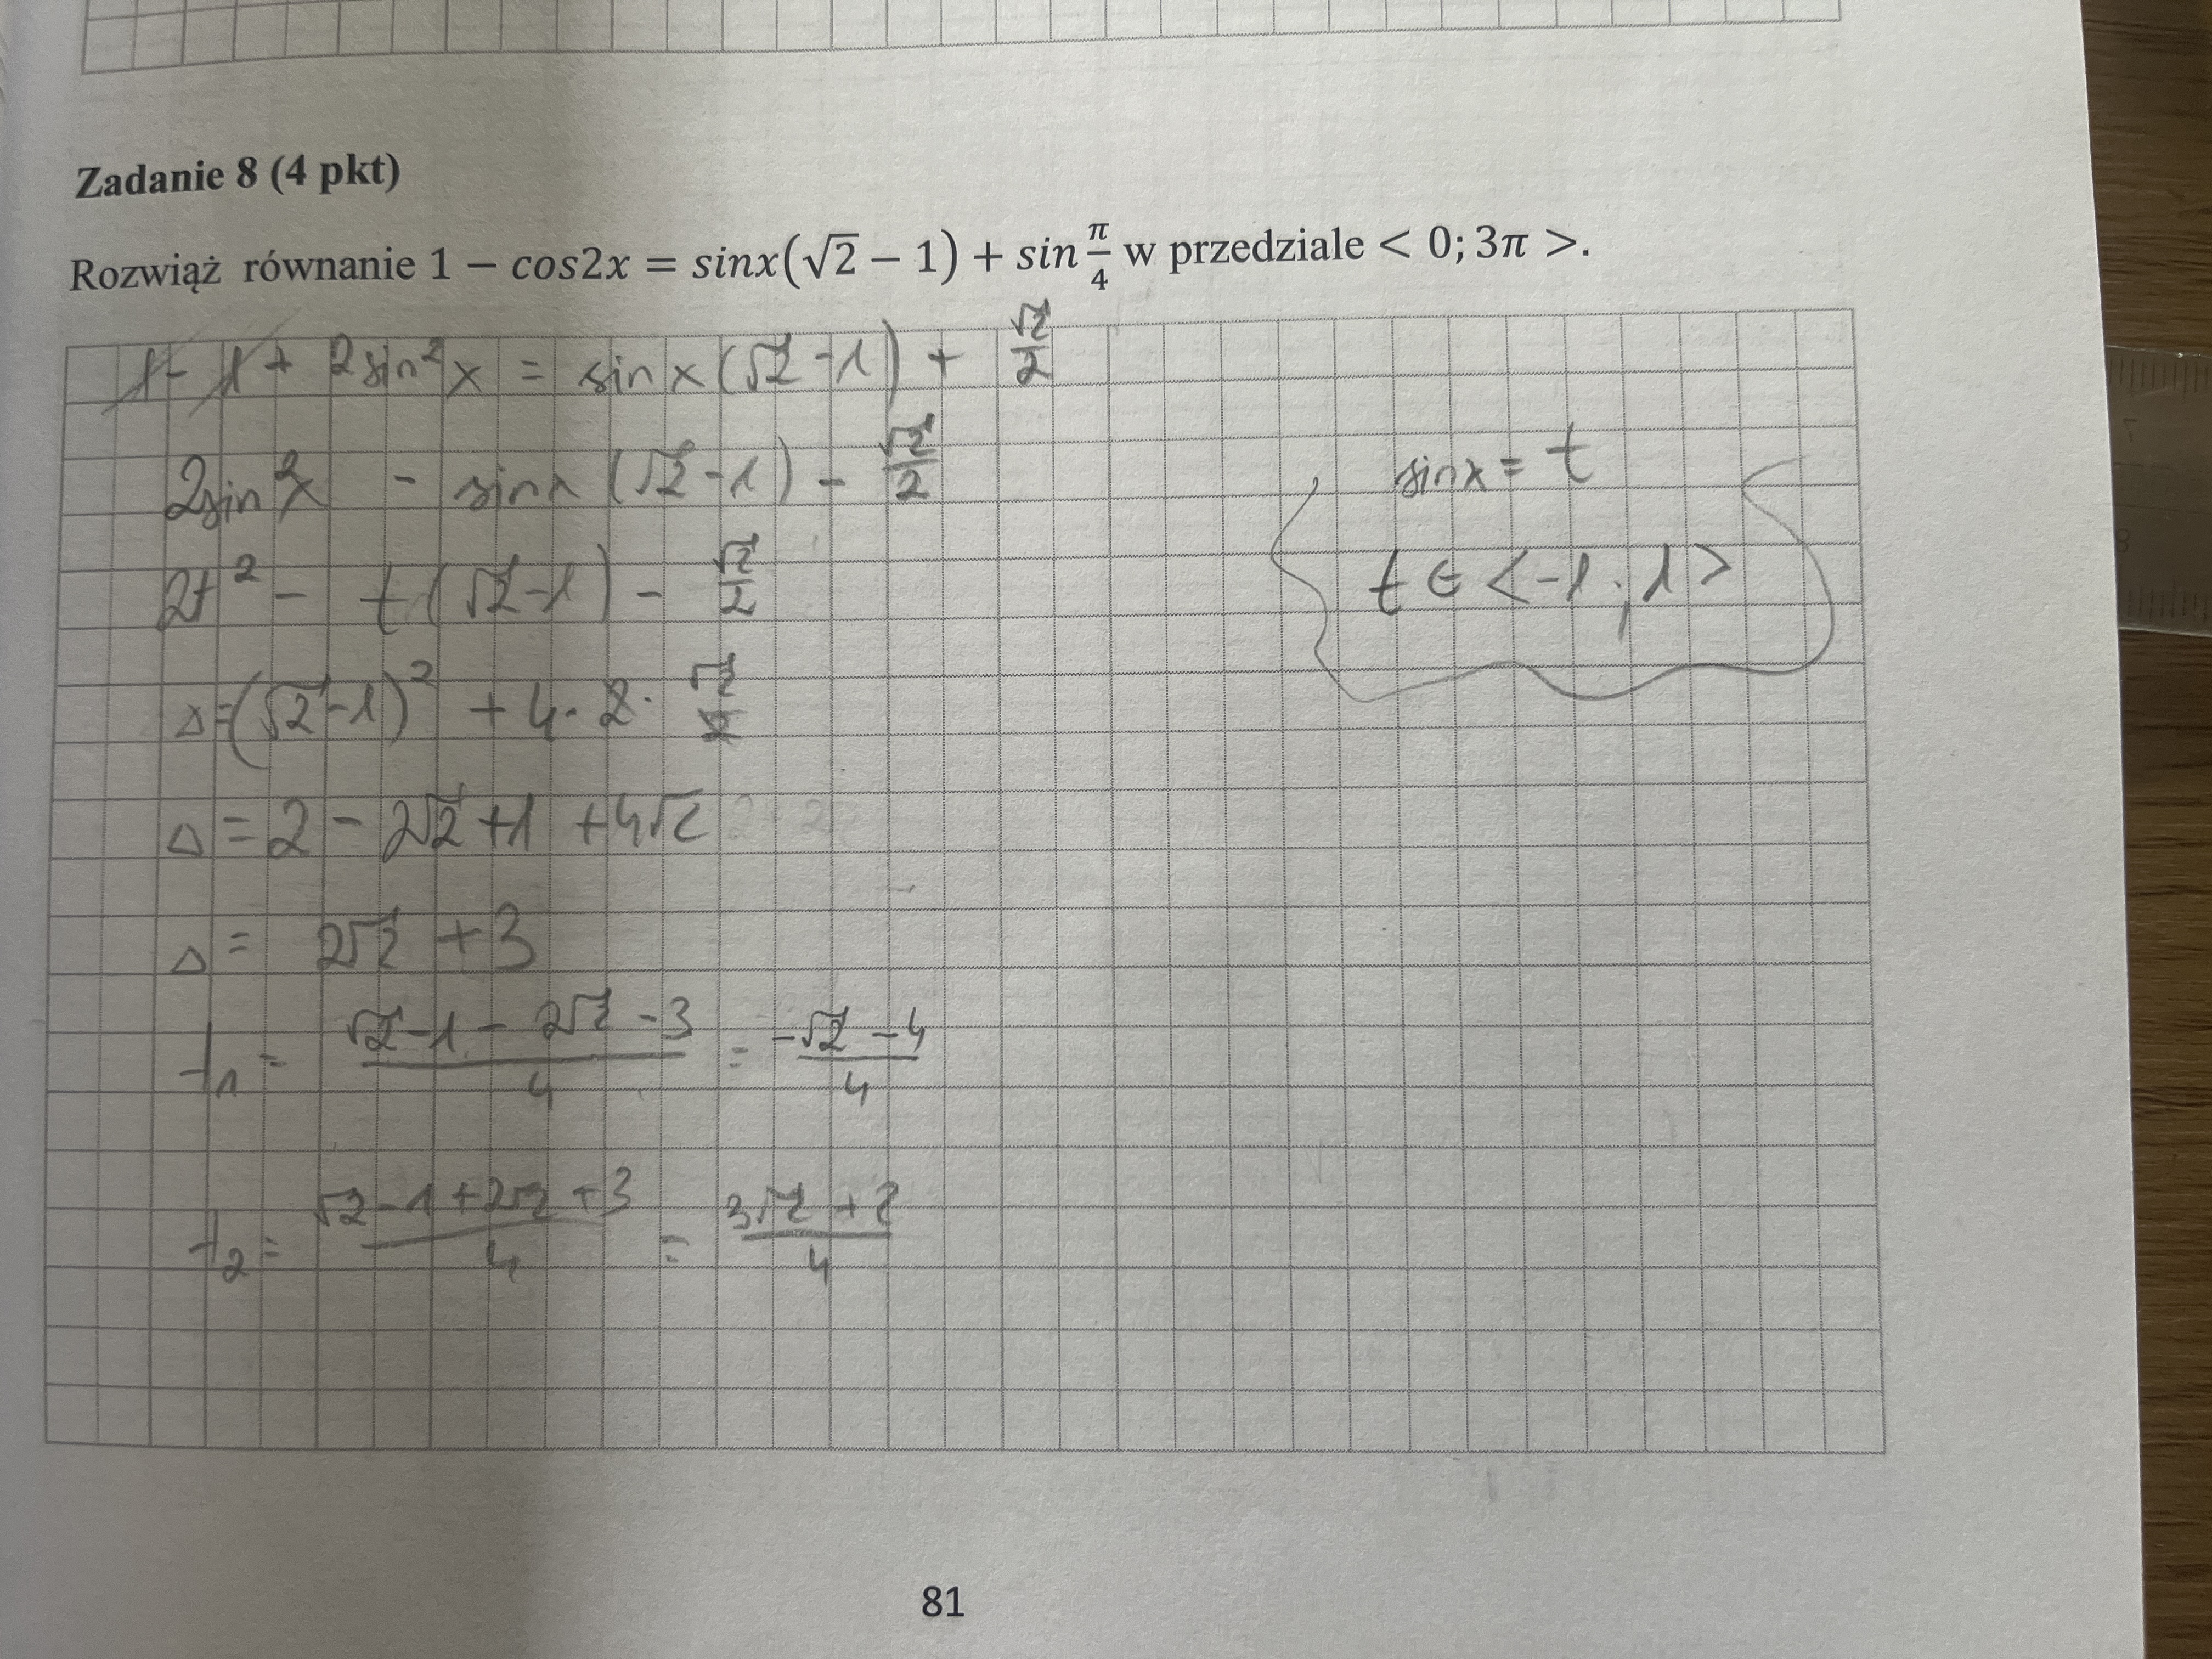 Zadanie 8 (4 pkt)
Rozwiąż równanie 1 − cos2x = sinx(√2 − 1) + sin π/4 w przedziale < 0; 3π >.
1 - 1 + 2sin²x = sin x (√2 - 1) + √2/2
2sin²x - sinx (√2 - 1) - √2/2
sinx = t
2t² - t(√2 - 1) - √2/2
t ∈ <-1 ; 1>
Δ = (√2 - 1)² + 4 · 2 · √2/2
Δ = 2 - 2√2 + 1 + 4√2
Δ = 2√2 + 3
t₁ = (√2 - 1 - 2√2 - 3)/4 = (-√2 - 4)/4
t₂ = (√2 - 1 + 2√2 + 3)/4 = (3√2 + 2)/4
81